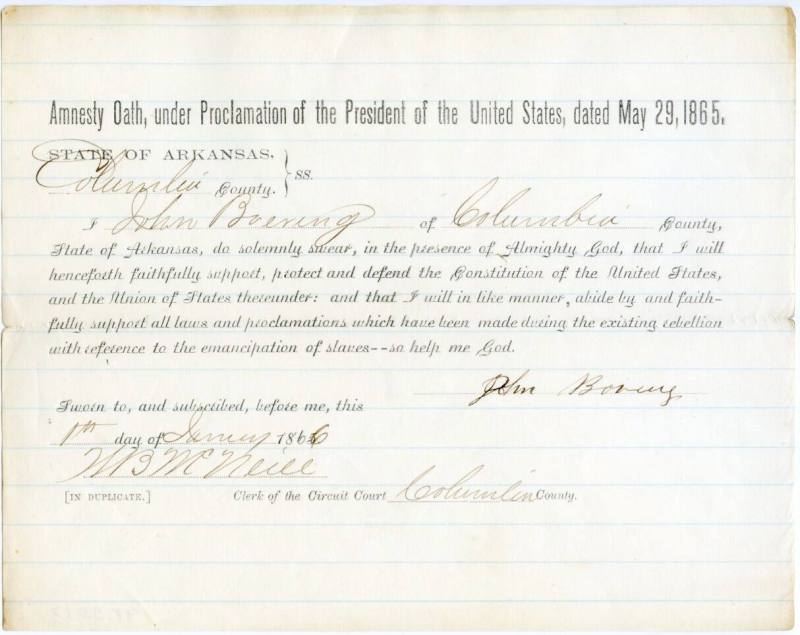 Amnesty Oath, under Proclamation of the President of the United States, dated May 29, 1865.
STATE OF ARKANSAS,
Columbia County. } SS.
I John Boering of Columbia County,
State of Arkansas, do solemnly swear, in the presence of Almighty God, that I will
henceforth faithfully support, protect and defend the Constitution of the United States,
and the Union of States thereunder: and that I will in like manner, abide by and faith-
fully support all laws and proclamations which have been made during the existing rebellion
with reference to the emancipation of slaves--so help me God.
John Boering
Sworn to, and subscribed, before me, this
day of January 1866
W B McNeill
[IN DUPLICATE.] Clerk of the Circuit Court Columbia County.